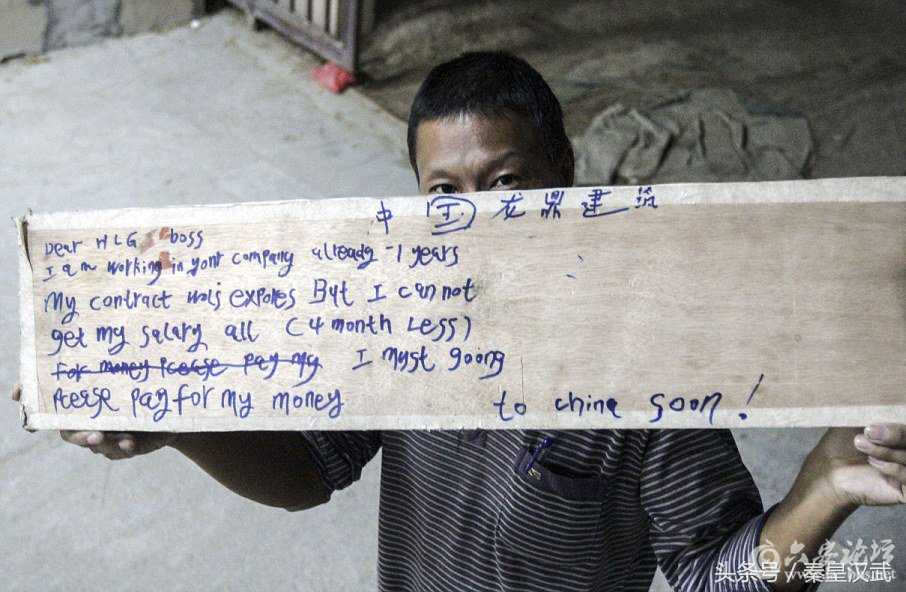 中国龙鼎建筑
Dear HLG boss
I am working in yonr company alleady -1 years
My contract wois expores But I can not
get my salary all (4 month Less)
For money Please pay my I myst goong
Please pay for my money to china soon!
六安论坛
头条号／秦皇汉武